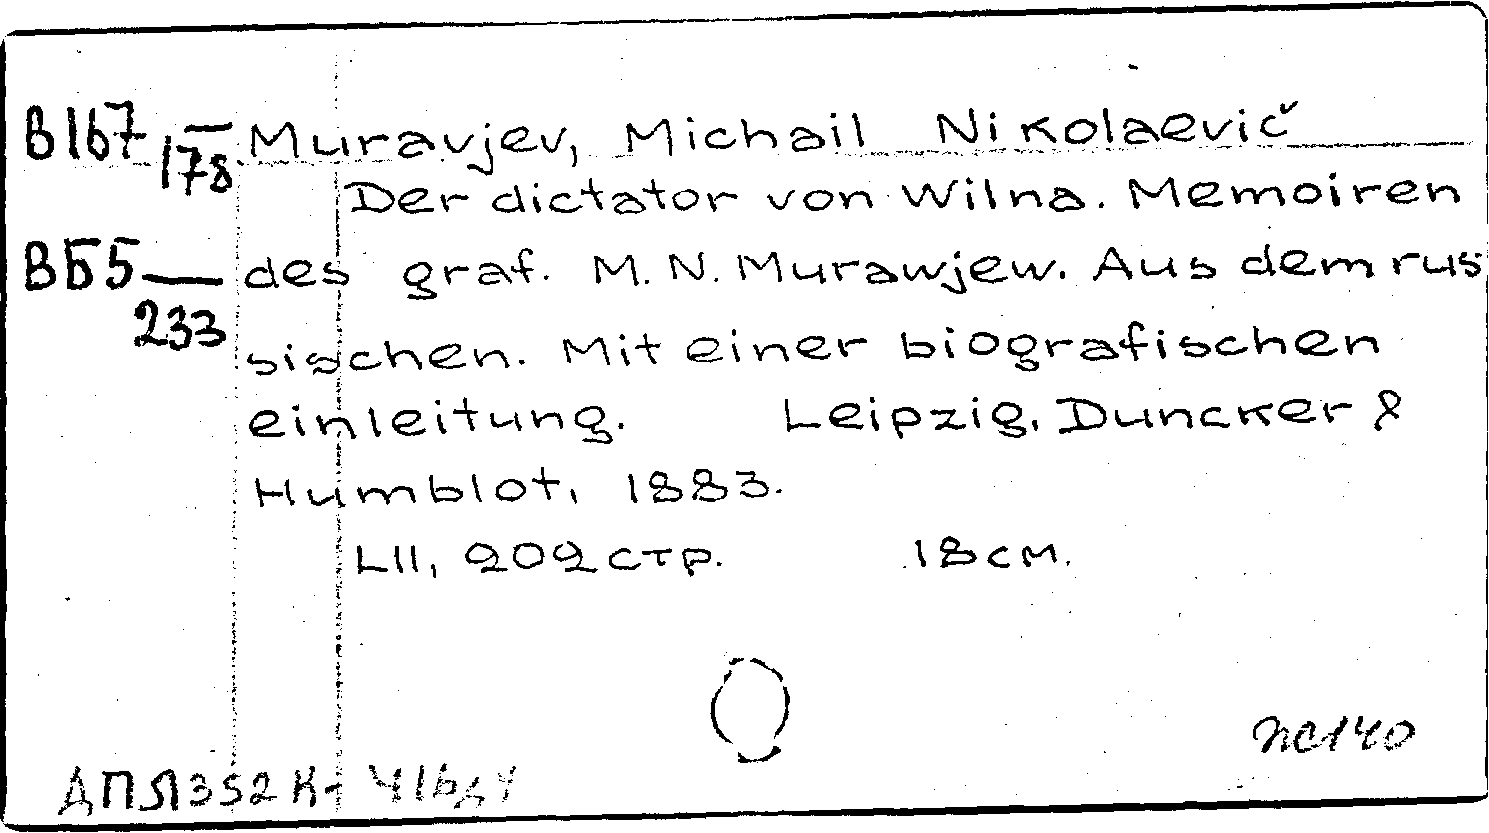 В167/178 Muravjev, Michail Nikolaevič
Der dictator von Wilna. Memoiren
ВБ5/233 des graf. M. N. Murawjew. Aus dem rus
sischen. Mit einer biografischen
einleitung. Leipzig, Duncker &
Humblot, 1883.
LII, 202 стр. 18 см.